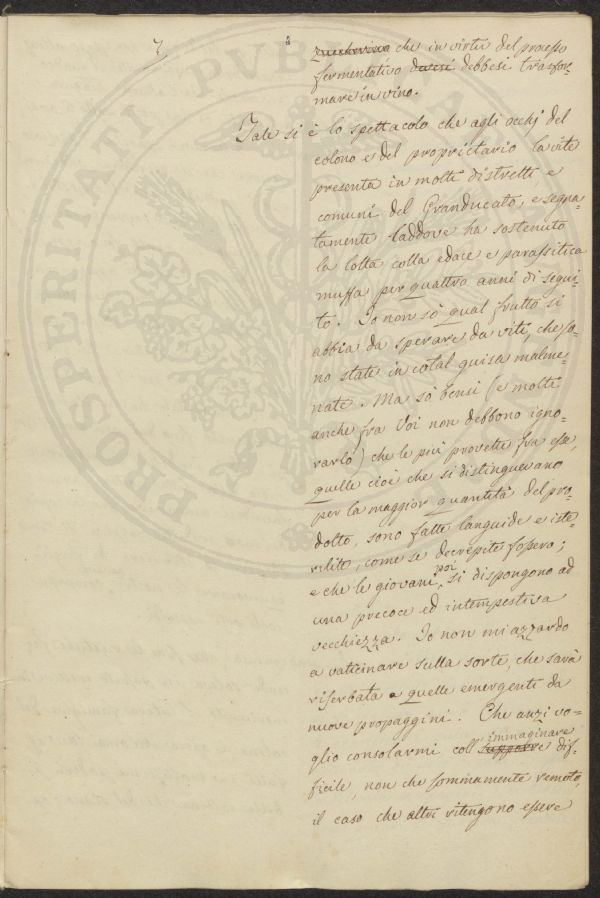 7
zuccherino che in virtù del processo
fermentativo devesi debbesi trasfor=
mare in vino.
Tale si è lo spettacolo che agli occhj del
colono e del proprietario la vite
presenta in molti distretti e
comuni del Granducato, e segna=
tamente laddove ha sostenuto
la lotta colla edace e parassitica
muffa per quattro anni di segui=
to. Io non sò qual frutto si
abbia da sperare da viti, che so=
no state in cotal guisa malme=
nate. Ma sò bensì (e molti
anche fra Voi non debbono igno=
rarlo) che le più provette fra esse,
quelle cioè che si distinguevano
per la maggior quantità del pro=
dotto, sono fatte languide e iste=
rilite, come se decrepite fossero;
e che le giovani poi si dispongono ad
una precoce ed intempestiva
vecchiezza. Io non mi azzardo
a vaticinare sulla sorte, che sarà
riserbata a quelle emergenti da
nuove propaggini. Che anzi vo=
glio consolarmi coll'supporre immaginare dif=
ficile, non che sommamente remoto,
il caso che altri ritengono essere
PROSPERITATI PVBLICAE